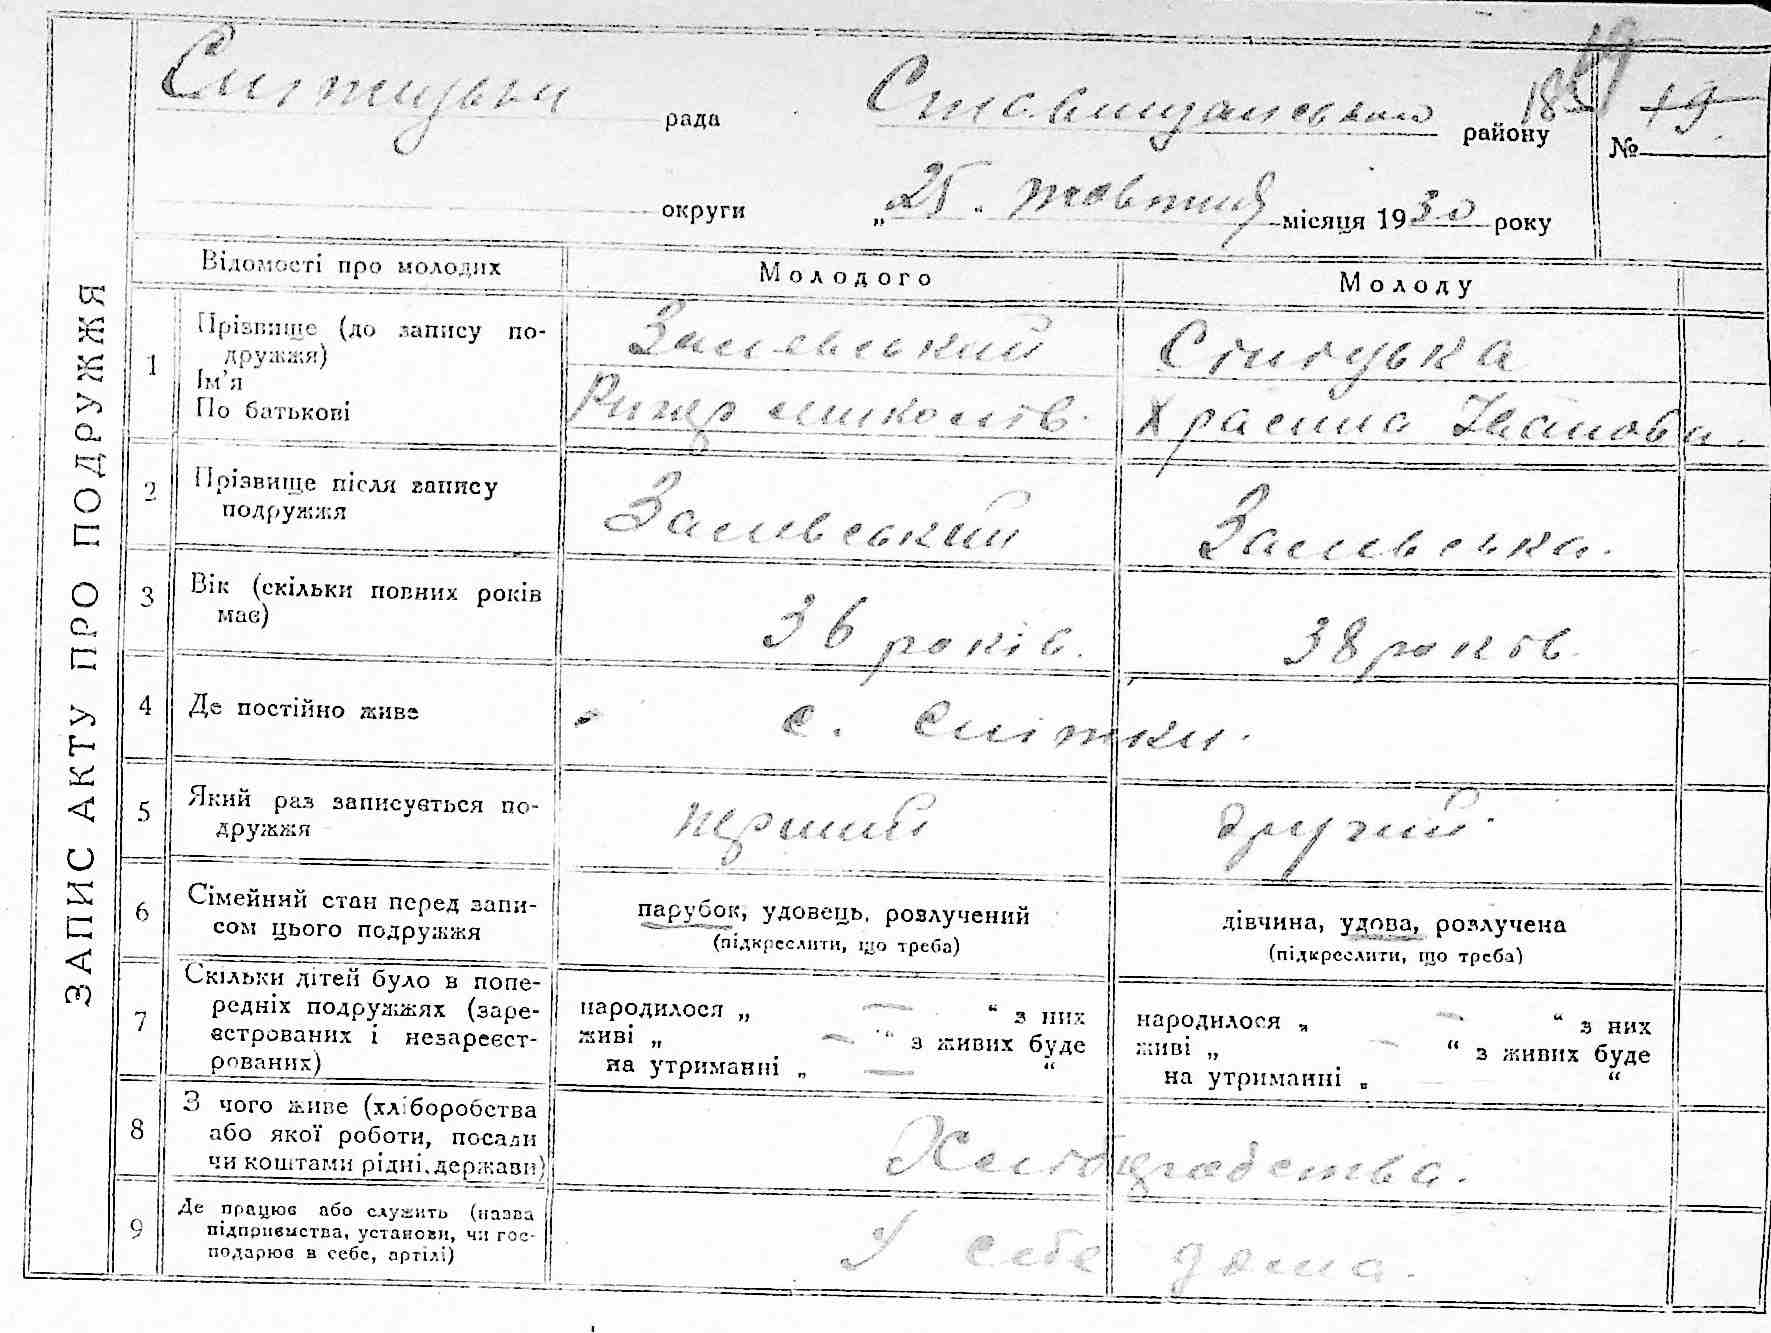 ЗАПИС АКТУ ПРО ПОДРУЖЖЯ
рада
Ставищанського району
№ 19
округи „25“ жовтня місяця 1930 року
Відомості про молодих Молодого Молоду
1 Прізвище (до запису по-
дружжя)
Ім’я
По батькові
Храсина Іванова.
2 Прізвище після запису
подружжя
3 Вік (скільки повних років
має)
36 років. 38 років.
4 Де постійно живе
с. Снітки.
5 Який раз записується по-
дружжя
перший другий.
6 Сімейний стан перед запи-
сом цього подружжя
парубок, удовець, розлучений
(підкреслити, що треба)
дівчина, удова, розлучена
(підкреслити, що треба)
7 Скільки дітей було в попе-
редніх подружжях (заре-
єстрованих і незареєст-
рованих)
народилося „ — “ з них
живі „ — “ з живих буде
на утриманні „ — “
народилося „ — “ з них
живі „ — “ з живих буде
на утриманні „ “
8 З чого живе (хліборобства
або якої роботи, посади
чи коштами рідні, держави)
9 Де працює або служить (назва
підприємства, установи, чи гос-
подарює в себе, артілі)
У себе дома.